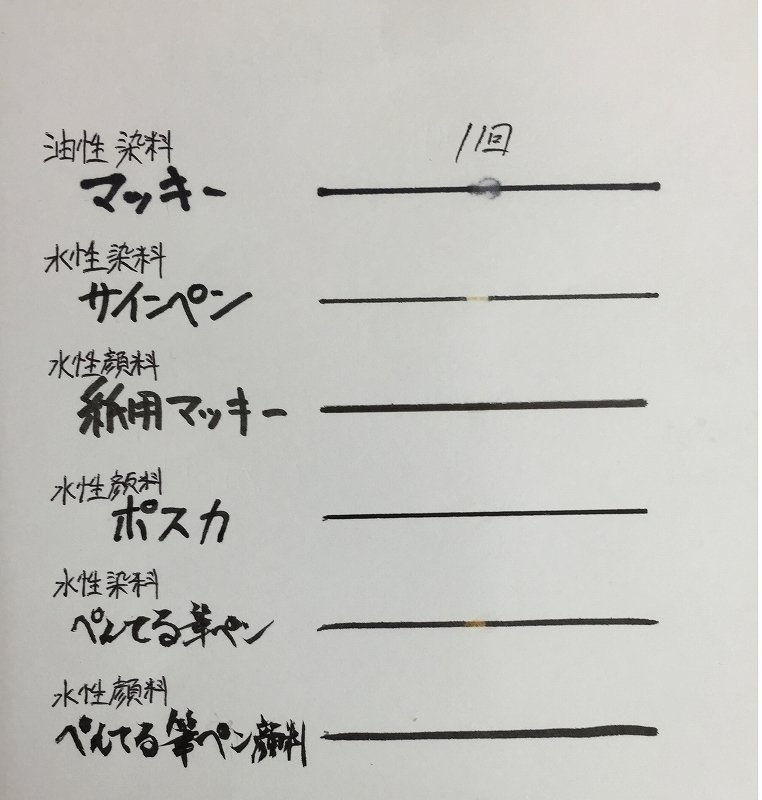 油性染料
11回
マッキー
水性染料
サインペン
水性顔料
紙用マッキー
水性顔料
ポスカ
水性染料
ぺんてる筆ペン
水性顔料
ぺんてる筆ペン顔料